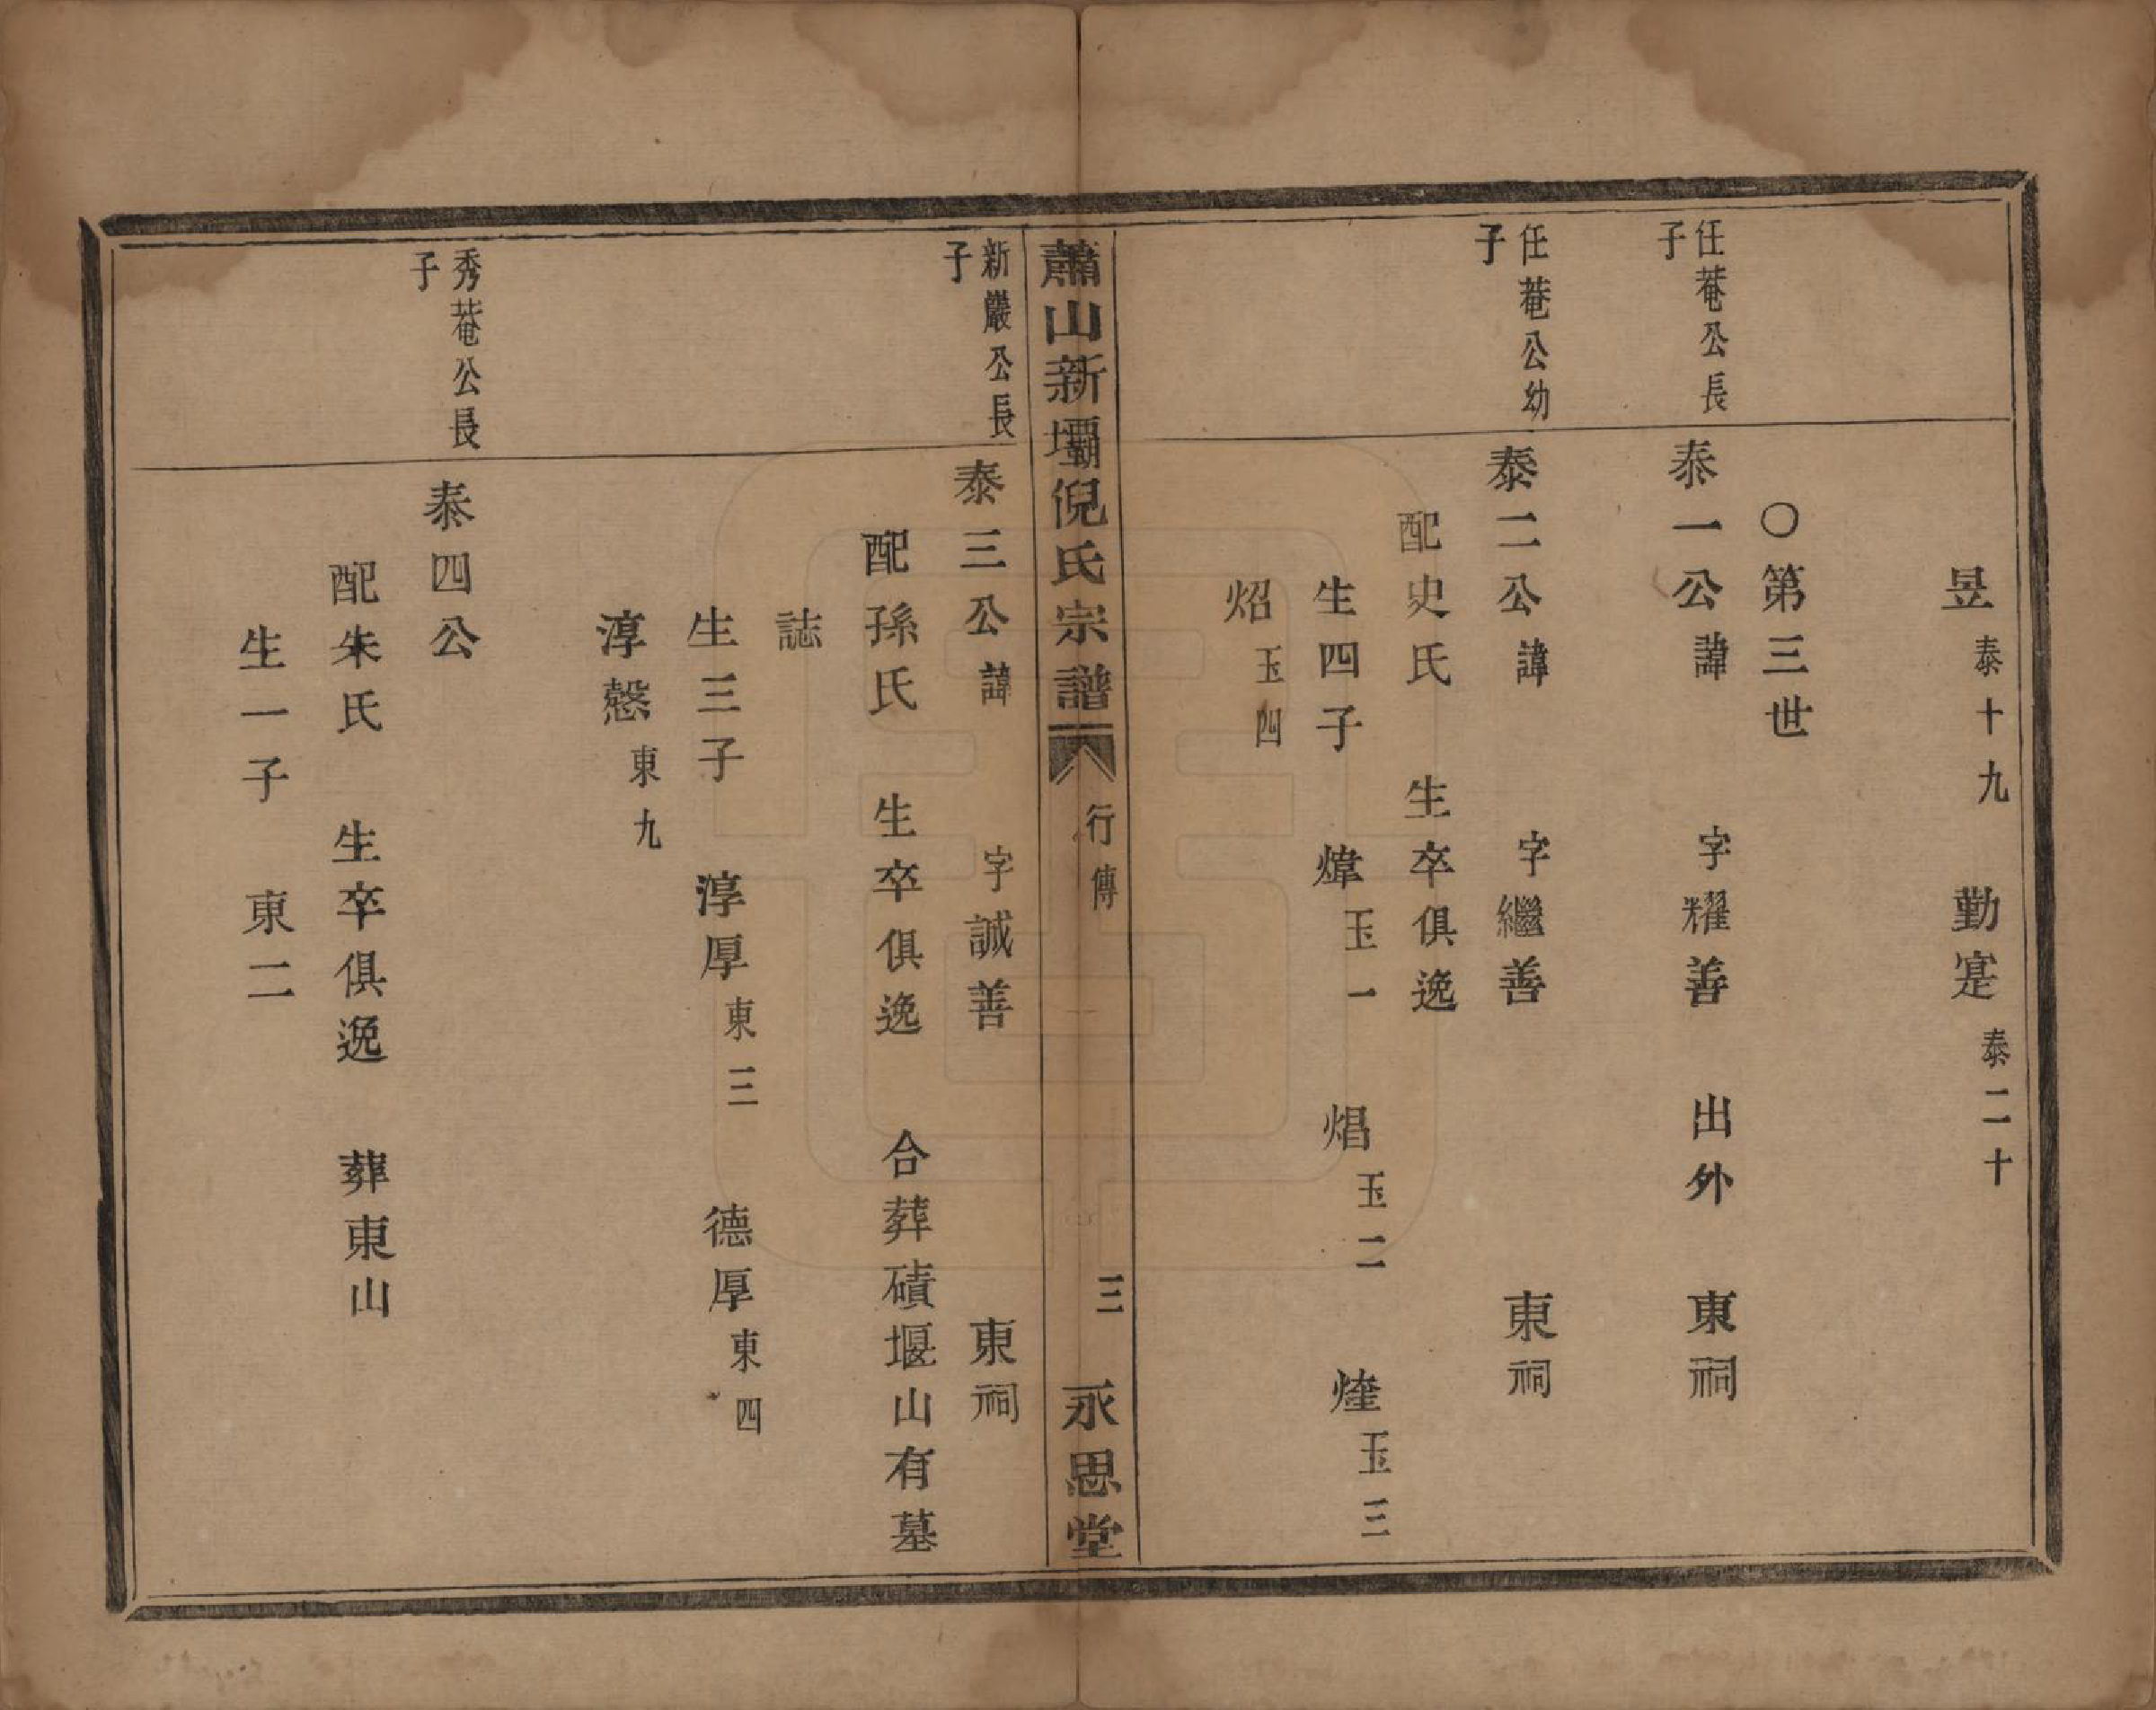 昱泰十九　勤寔泰二十
〇第三世
任菴公長子
泰一公諱　字耀善　出外　東祠
任菴公幼子
泰二公諱　字繼善　東祠
配史氏　生卒俱逸
生四子　煒玉一　焻玉二　煃玉三
炤玉四
蕭山新壩倪氏宗譜　行傳　三　永思堂
新巖公長子
泰三公諱　字誠善　東祠
配孫氏　生卒俱逸　合葬磧堰山有墓
誌
生三子　淳厚東三　德厚東四
淳慤東九
秀菴公長子
泰四公
配朱氏　生卒俱逸　葬東山
生一子　東二